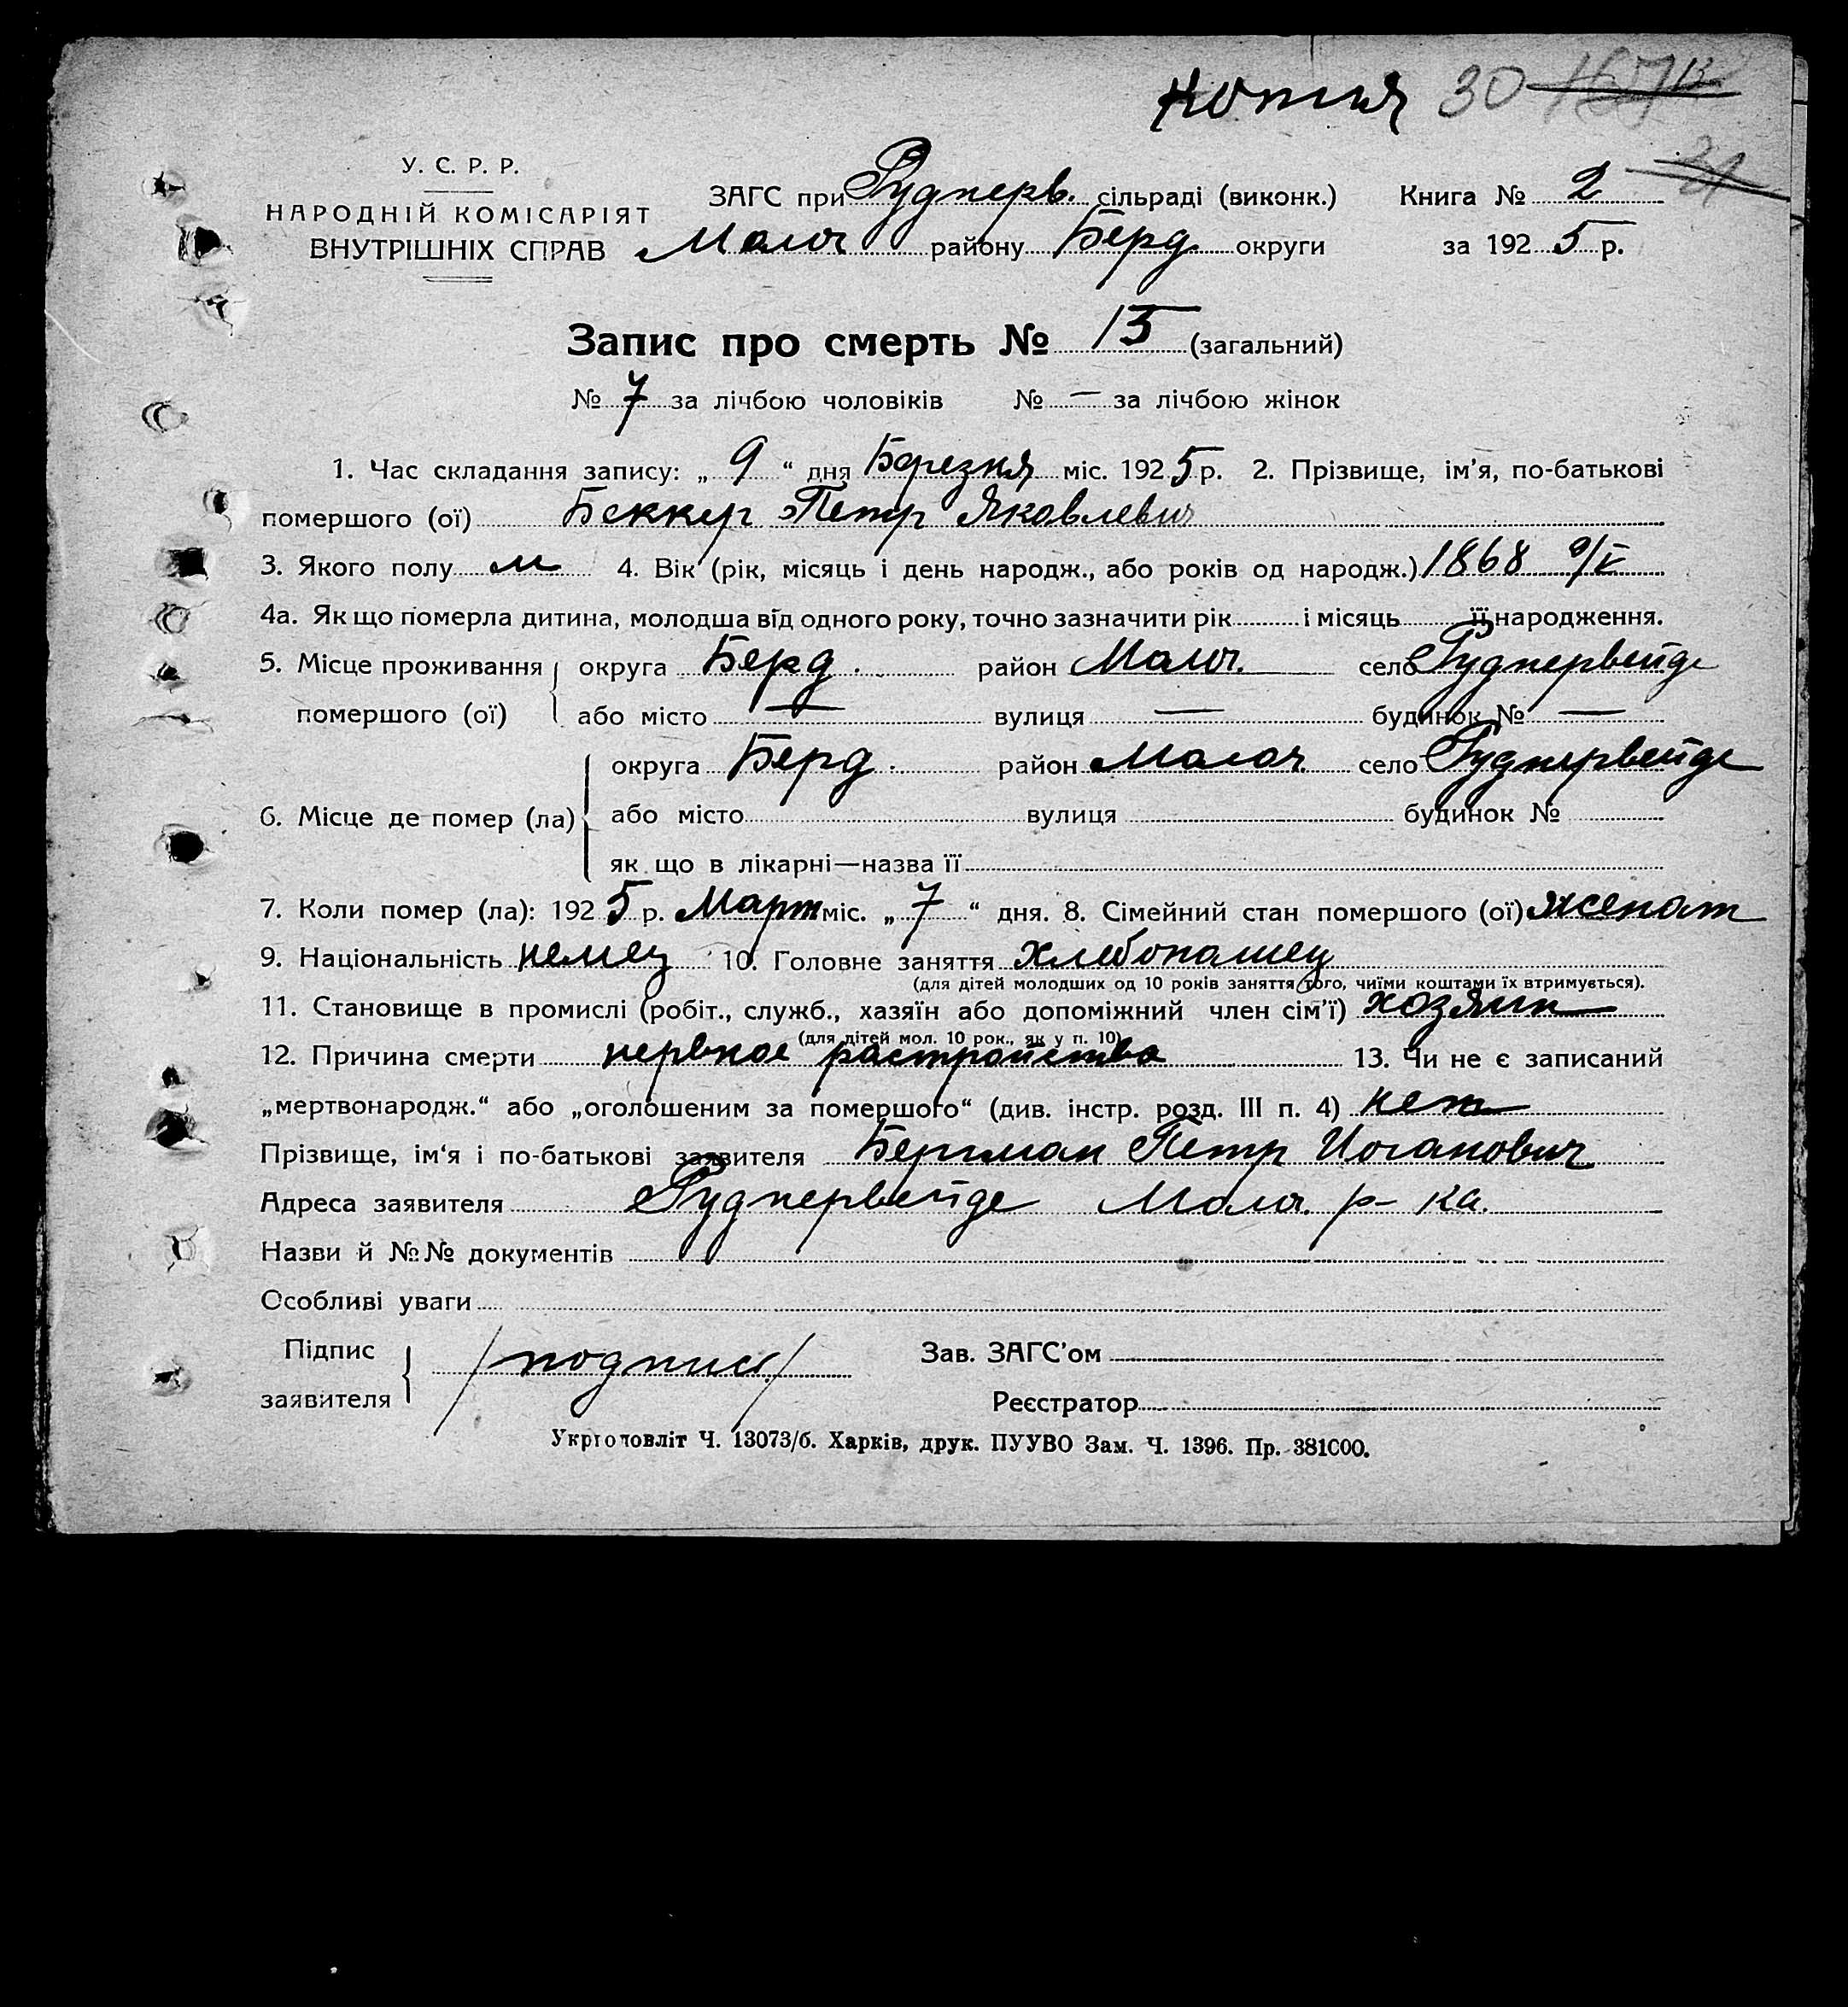 копия 30
У. С. Р. Р.
НАРОДНІЙ КОМІСАРІЯТ
ВНУТРІШНІХ СПРАВ
ЗАГС при Руднерв. сільраді (виконк.) Книга № 2
Молоч району Берд. округи за 1925 р.
Запис про смерть № 15 (загальний)
№ 7 за лічбою чоловіків № — за лічбою жінок
1. Час складання запису: „ 9 “ дня Березня міс. 1925 р. 2. Прізвище, ім'я, по-батькові
помершого (ої) Беккер Петр Яковлевич
3. Якого полу м 4. Вік (рік, місяць і день народж., або років од народж.) 1868 9/V
4а. Як що померла дитина, молодша від одного року, точно зазначити рік і місяць її народження.
5. Місце проживання помершого (ої) округа Берд. район Молоч. село Руднервейде
або місто — вулиця — будинок № —
6. Місце де помер (ла) округа Берд. район Молоч. село Руднервейде
або місто вулиця будинок №
як що в лікарні—назва її
7. Коли помер (ла): 1925 р. Март міс. „ 7 “ дня. 8. Сімейний стан помершого (ої) женат
9. Національність немец 10. Головне заняття хлебопашец
(для дітей молодших од 10 років заняття того, чиїми коштами їх втримується).
11. Становище в промислі (робіт., служб., хазяїн або допоміжний член сім'ї) хозяин
(для дітей мол. 10 рок., як у п. 10)
12. Причина смерти нервное растройство 13. Чи не є записаний
„мертвонародж.“ або „оголошеним за помершого“ (див. інстр. розд. III п. 4) нет
Прізвище, ім'я і по-батькові заявителя Бергман Петр Иоганович
Адреса заявителя Руднервейде Молоч. р-ка.
Назви й №№ документів
Особливі уваги
Підпис заявителя /подпись/ Зав. ЗАГС'ом
Реєстратор
Укрголовліт Ч. 13073/б. Харків, друк. ПУУВО Зам. Ч. 1396. Пр. 381000.